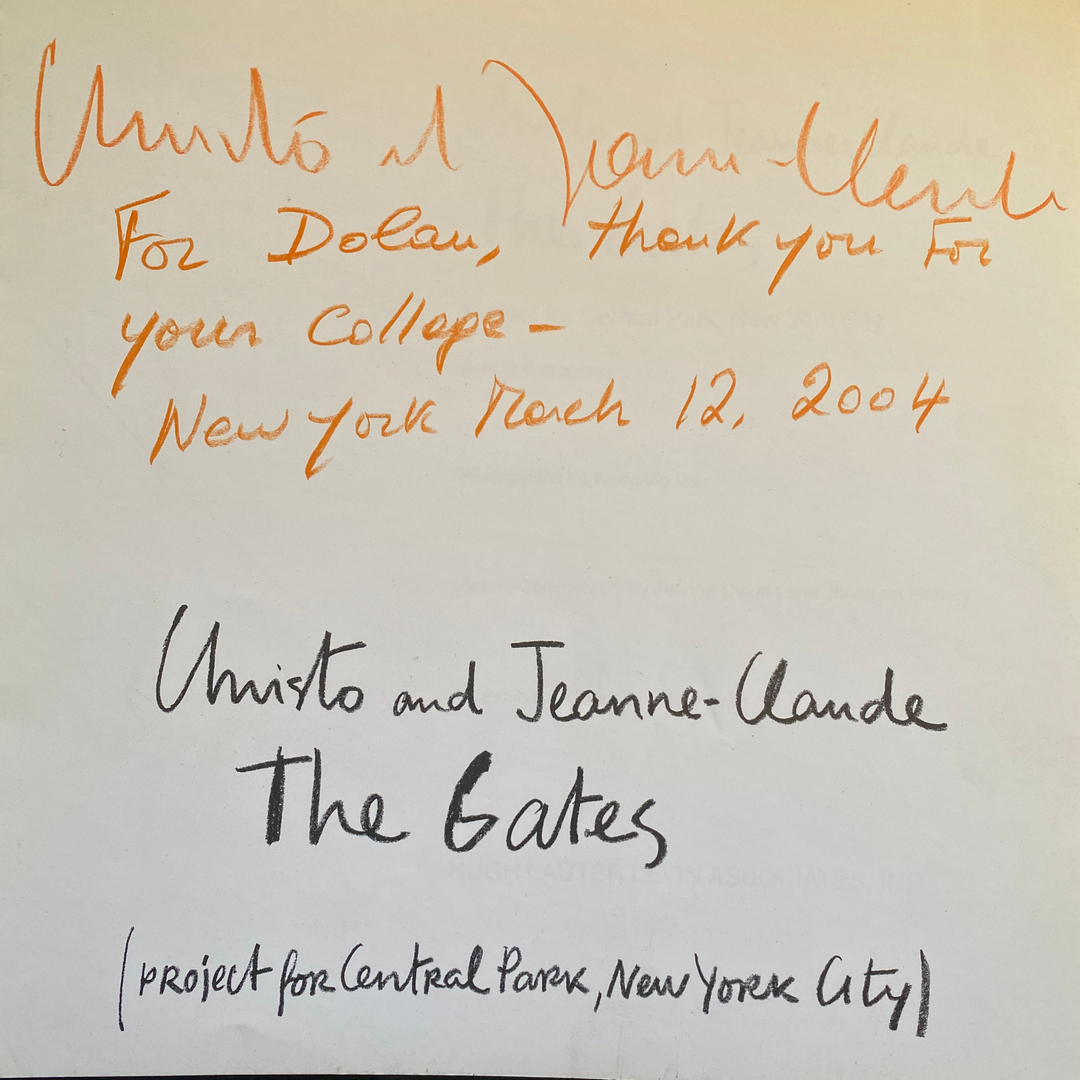 Christo et Jeanne-Claude
For Dolan, thank you For
your Collage –
New York March 12, 2004
Christo and Jeanne-Claude
The Gates
(project for Central Park, New York City)